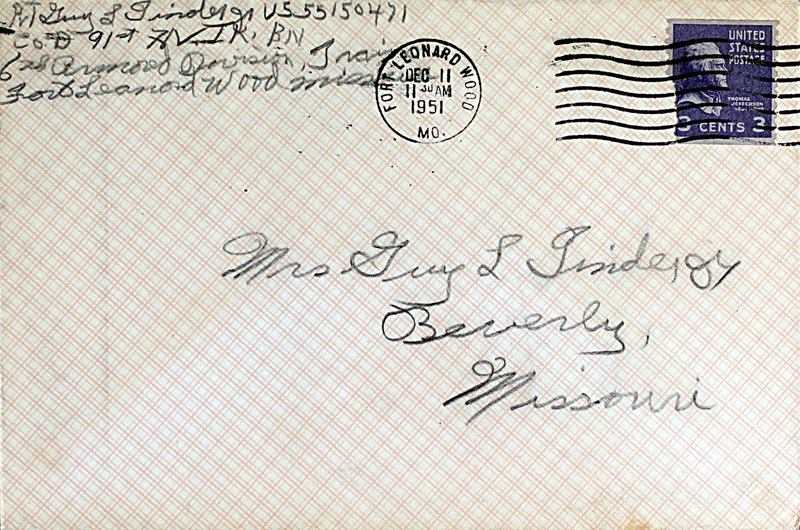 Guy L US 55150471
Co D 91st BN
6th Armored Division,
Fort Leanord Wood
FORT LEONARD WOOD
DEC 11
11 30 AM
1951
MO.
UNITED
STATES
POSTAGE
THOMAS
JEFFERSON
3 CENTS 3
Mrs Guy L
Beverly,
Missouri